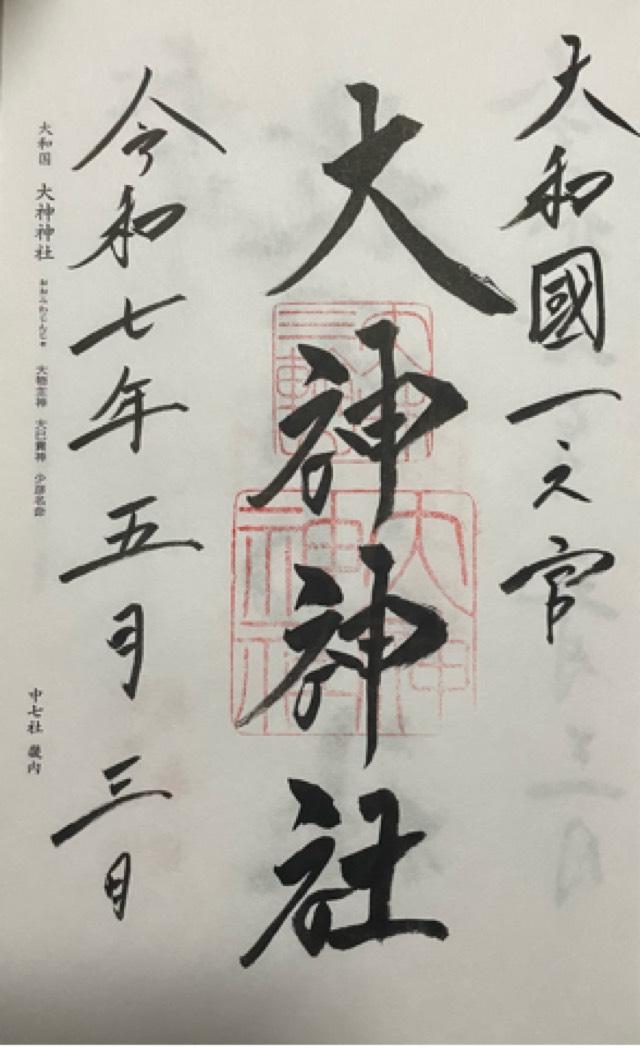 大和國一之宮
大神神社
大神神社
令和七年五月三日
大和国 大神神社 おおみわじんじゃ 大物主神 大己貴神 少彦名命
中七社 畿内